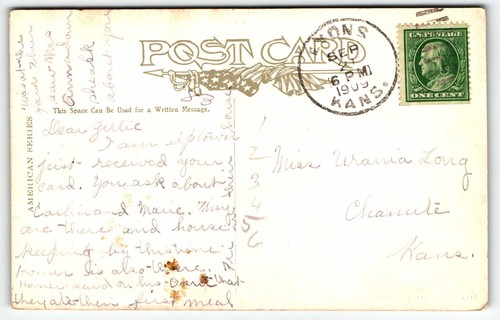 POST CARD
This Space Can Be Used for a Written Message.
AMERICAN SERIES
LYONS
SEP
6 PM
1909
KANS.
U.S. POSTAGE
ONE CENT
Dear Girlie
I am uptown
just received your
card. You ask about
Earl and Marie. They
are there and house
keeping by this time.
Homer is also there.
Homer said on his card that
they ate their first meal
in their house
yard when
saw Mrs
about you
1
2
3
4
5
6
Miss Urania Long
Chanute
Kans.